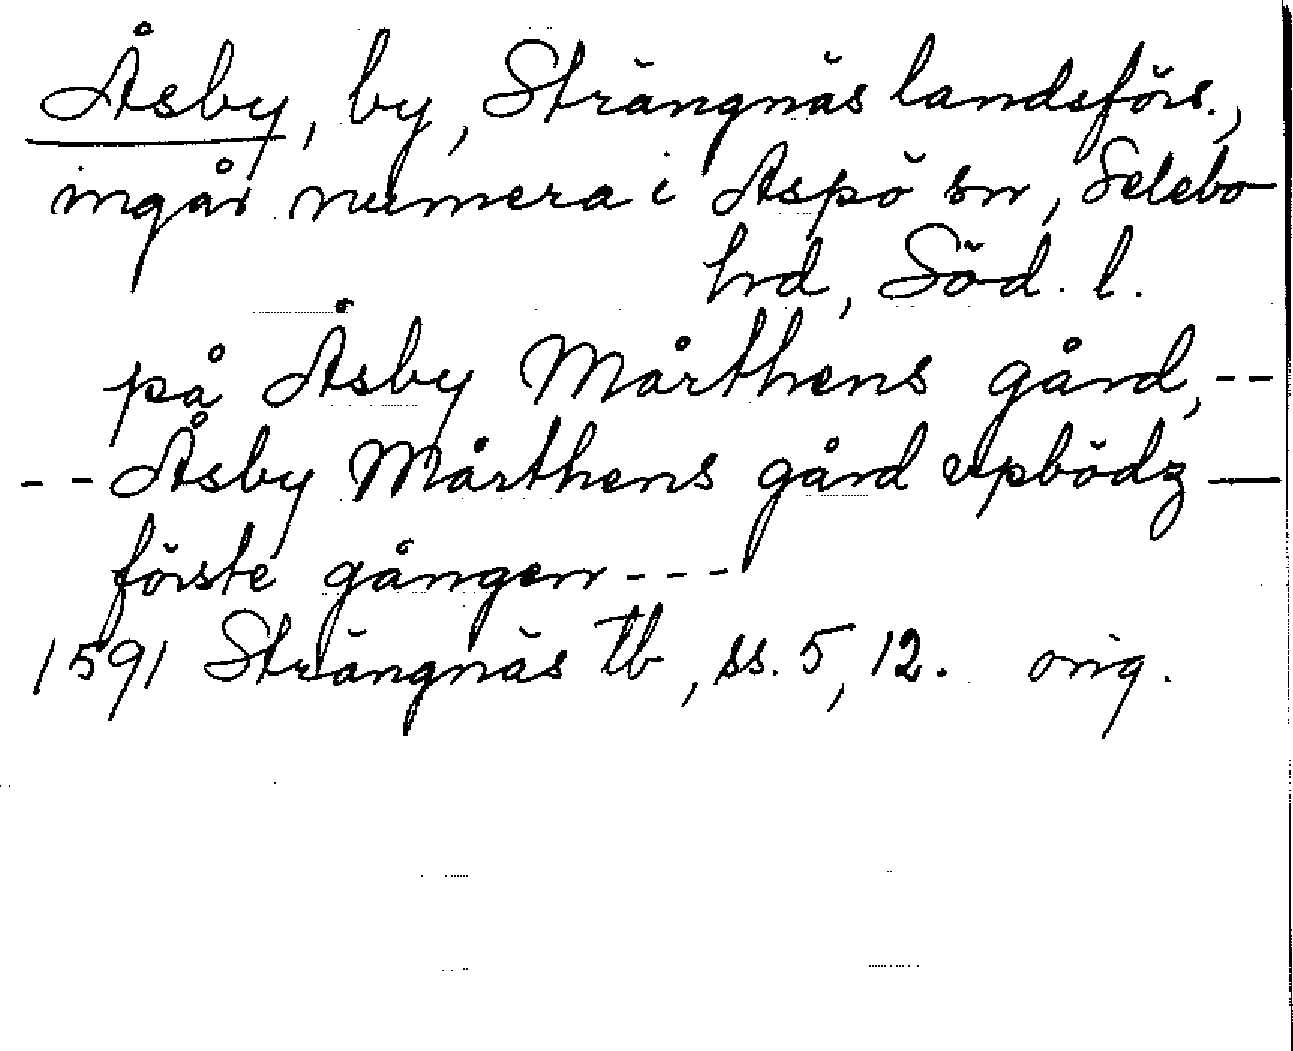 Åsby, by, Strängnäs landsförs.,
ingår numera i Aspö sn, Selebo
hd, Söd. l.
på Åsby Mårthens gård, --
-- Åsby Mårthens gård upbödz —
förste gången ---
1591 Strängnäs tb, ss. 5, 12. orig.